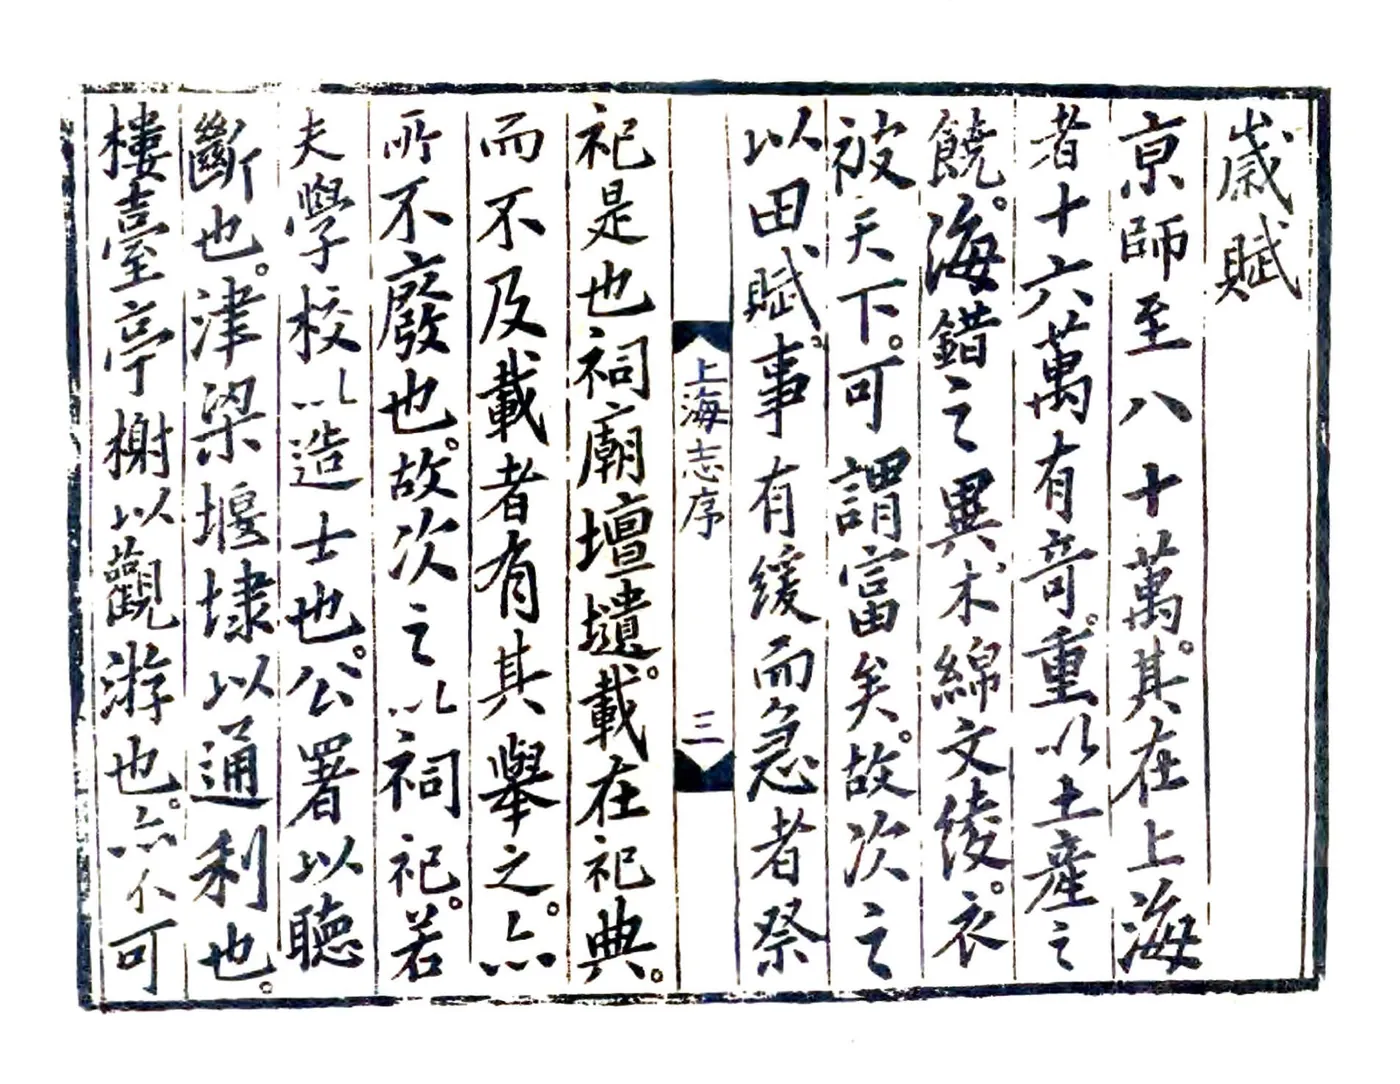 歲賦
京師至八十萬。其在上海
者十六萬有奇。重以土產之
饒。海錯之異、木綿文綾。衣
被天下。可謂富矣。故次之
以田賦。事有緩而急者祭
上海志序 三
祀是也祠廟壇壝。載在祀典。
而不及載者有其舉之。亦
所不廢也。故次之以祠祀。若
夫學校以造士也。公署以聽
斷也。津梁堰埭以通利也。
樓臺亭榭以觀游也。亦不可